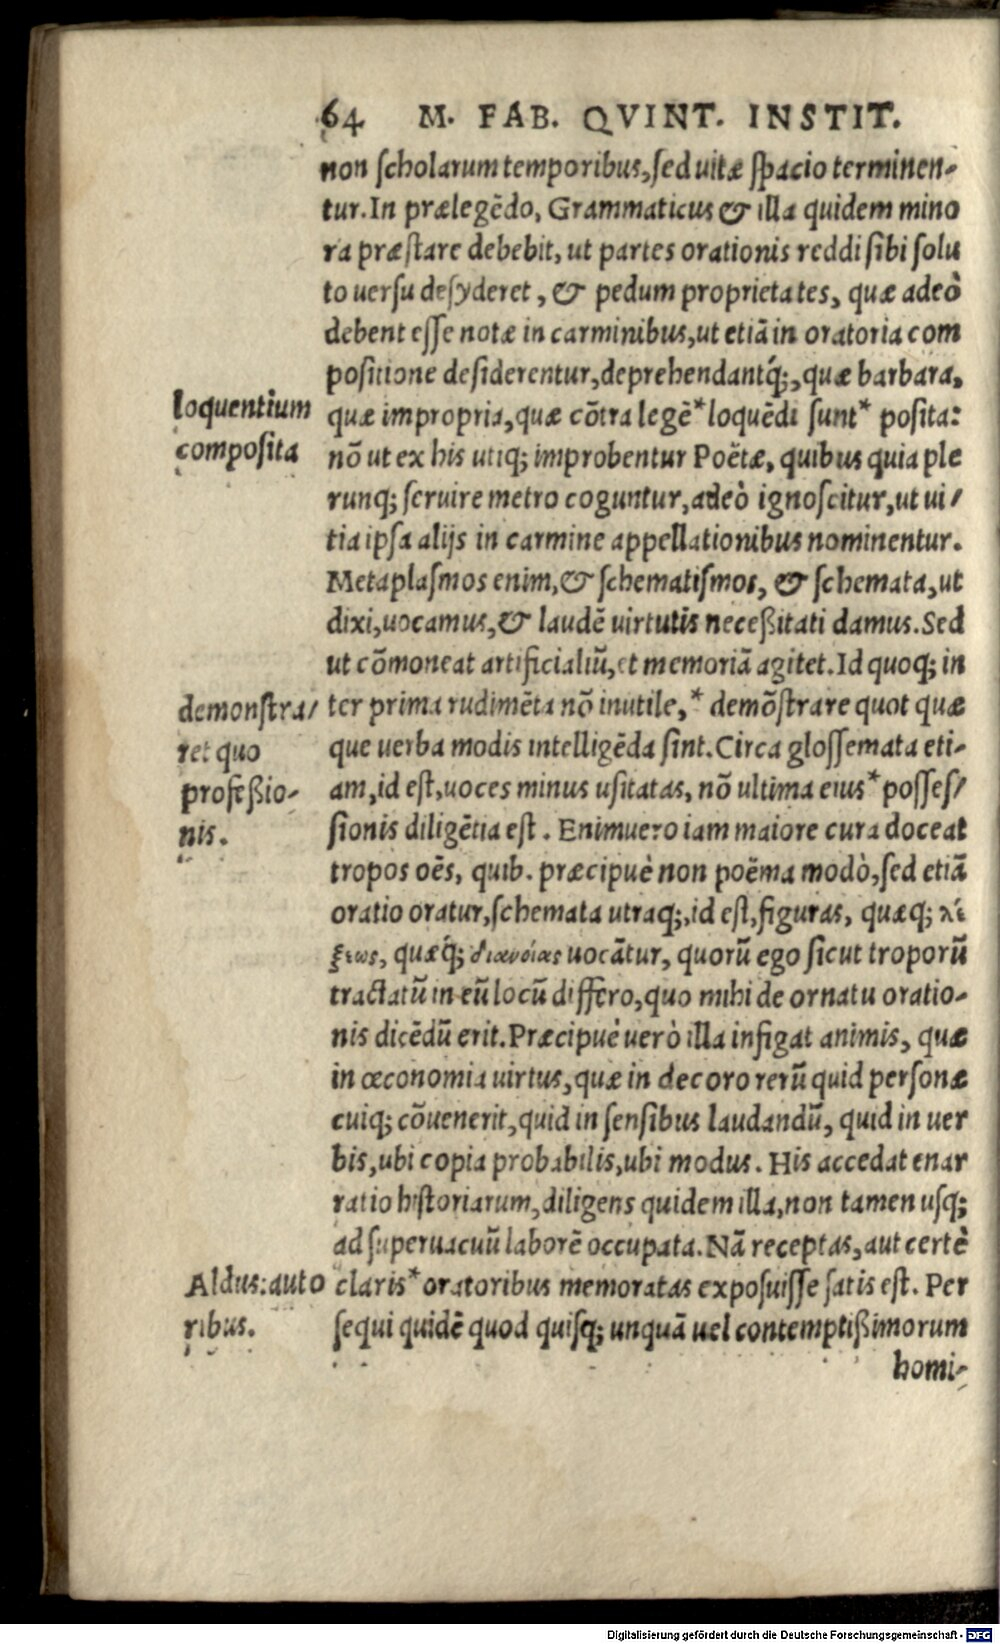 64 M. FAB. QVINT. INSTIT.
non scholarum temporibus, sed uitæ spacio terminen-
tur. In prælegēdo, Grammaticus & illa quidem mino
ra præstare debebit, ut partes orationis reddi sibi solu
to uersu desyderet, & pedum proprietates, quæ adeò
debent esse notæ in carminibus, ut etiā in oratoria com
positione desiderentur, deprehendantq́;, quæ barbara,
quæ impropria, quæ cōtra legē* loquēdi sunt* posita:
loquentium
composita
nō ut ex his utiq; improbentur Poëtæ, quibus quia ple
runq; seruire metro coguntur, adeò ignoscitur, ut ui/
tia ipsa alijs in carmine appellationibus nominentur.
Metaplasmos enim, & schematismos, & schemata, ut
dixi, uocamus, & laudē uirtutis necessitati damus. Sed
ut cōmoneat artificialiū, et memoriā agitet. Id quoq; in
ter prima rudimēta nō inutile, * demōstrare quot quæ
demonstra/
ret quo
professio-
nis.
que uerba modis intelligēda sint. Circa glossemata eti-
am, id est, uoces minus usitatas, nō ultima eius* posses/
sionis diligētia est. Enimuero iam maiore cura doceat
tropos oēs, quib. præcipuè non poëma modò, sed etiā
oratio oratur, schemata utraq;, id est, figuras, quæq; λέ
ξεως, quæq́; διανοίας uocātur, quorū ego sicut troporū
tractatū in eū locū differo, quo mihi de ornatu oratio-
nis dicēdū erit. Præcipuè uerò illa infigat animis, quæ
in œconomia uirtus, quæ in decoro rerū quid personæ
cuiq; cōuenerit, quid in sensibus laudandū, quid in uer
bis, ubi copia probabilis, ubi modus. His accedat enar
ratio historiarum, diligens quidem illa, non tamen usq;
ad superuacuū laborē occupata. Nā receptas, aut certè
claris* oratoribus memoratas exposuisse satis est. Per
Aldus: auto
ribus.
sequi quidē quod quisq; unquā uel contemptissimorum
homi-
Digitalisierung gefördert durch die Deutsche Forschungsgemeinschaft - DFG